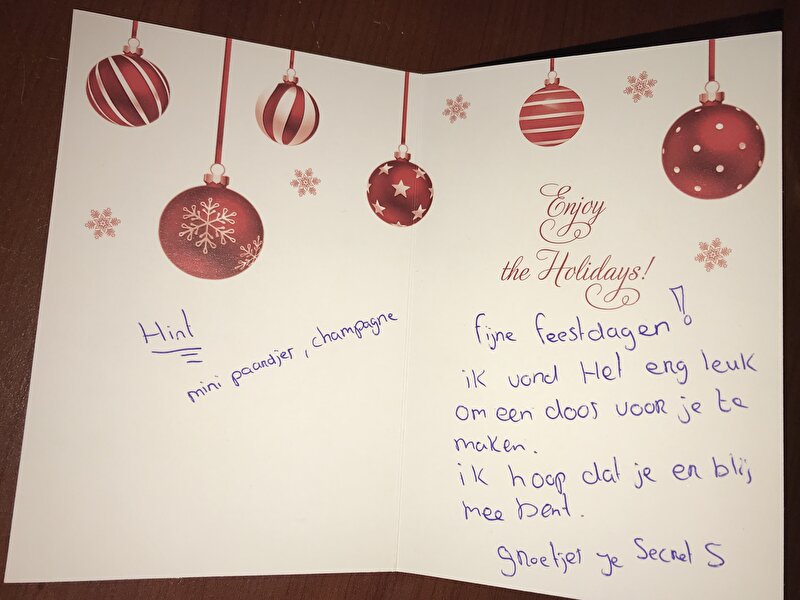 Hint
mini paardjer, champagne
Enjoy
the Holidays!
fijne feestdagen!
ik vond Het erg leuk
om een doos voor je te
maken.
ik hoop dat je er blij
mee bent.
groetjes je Secret S